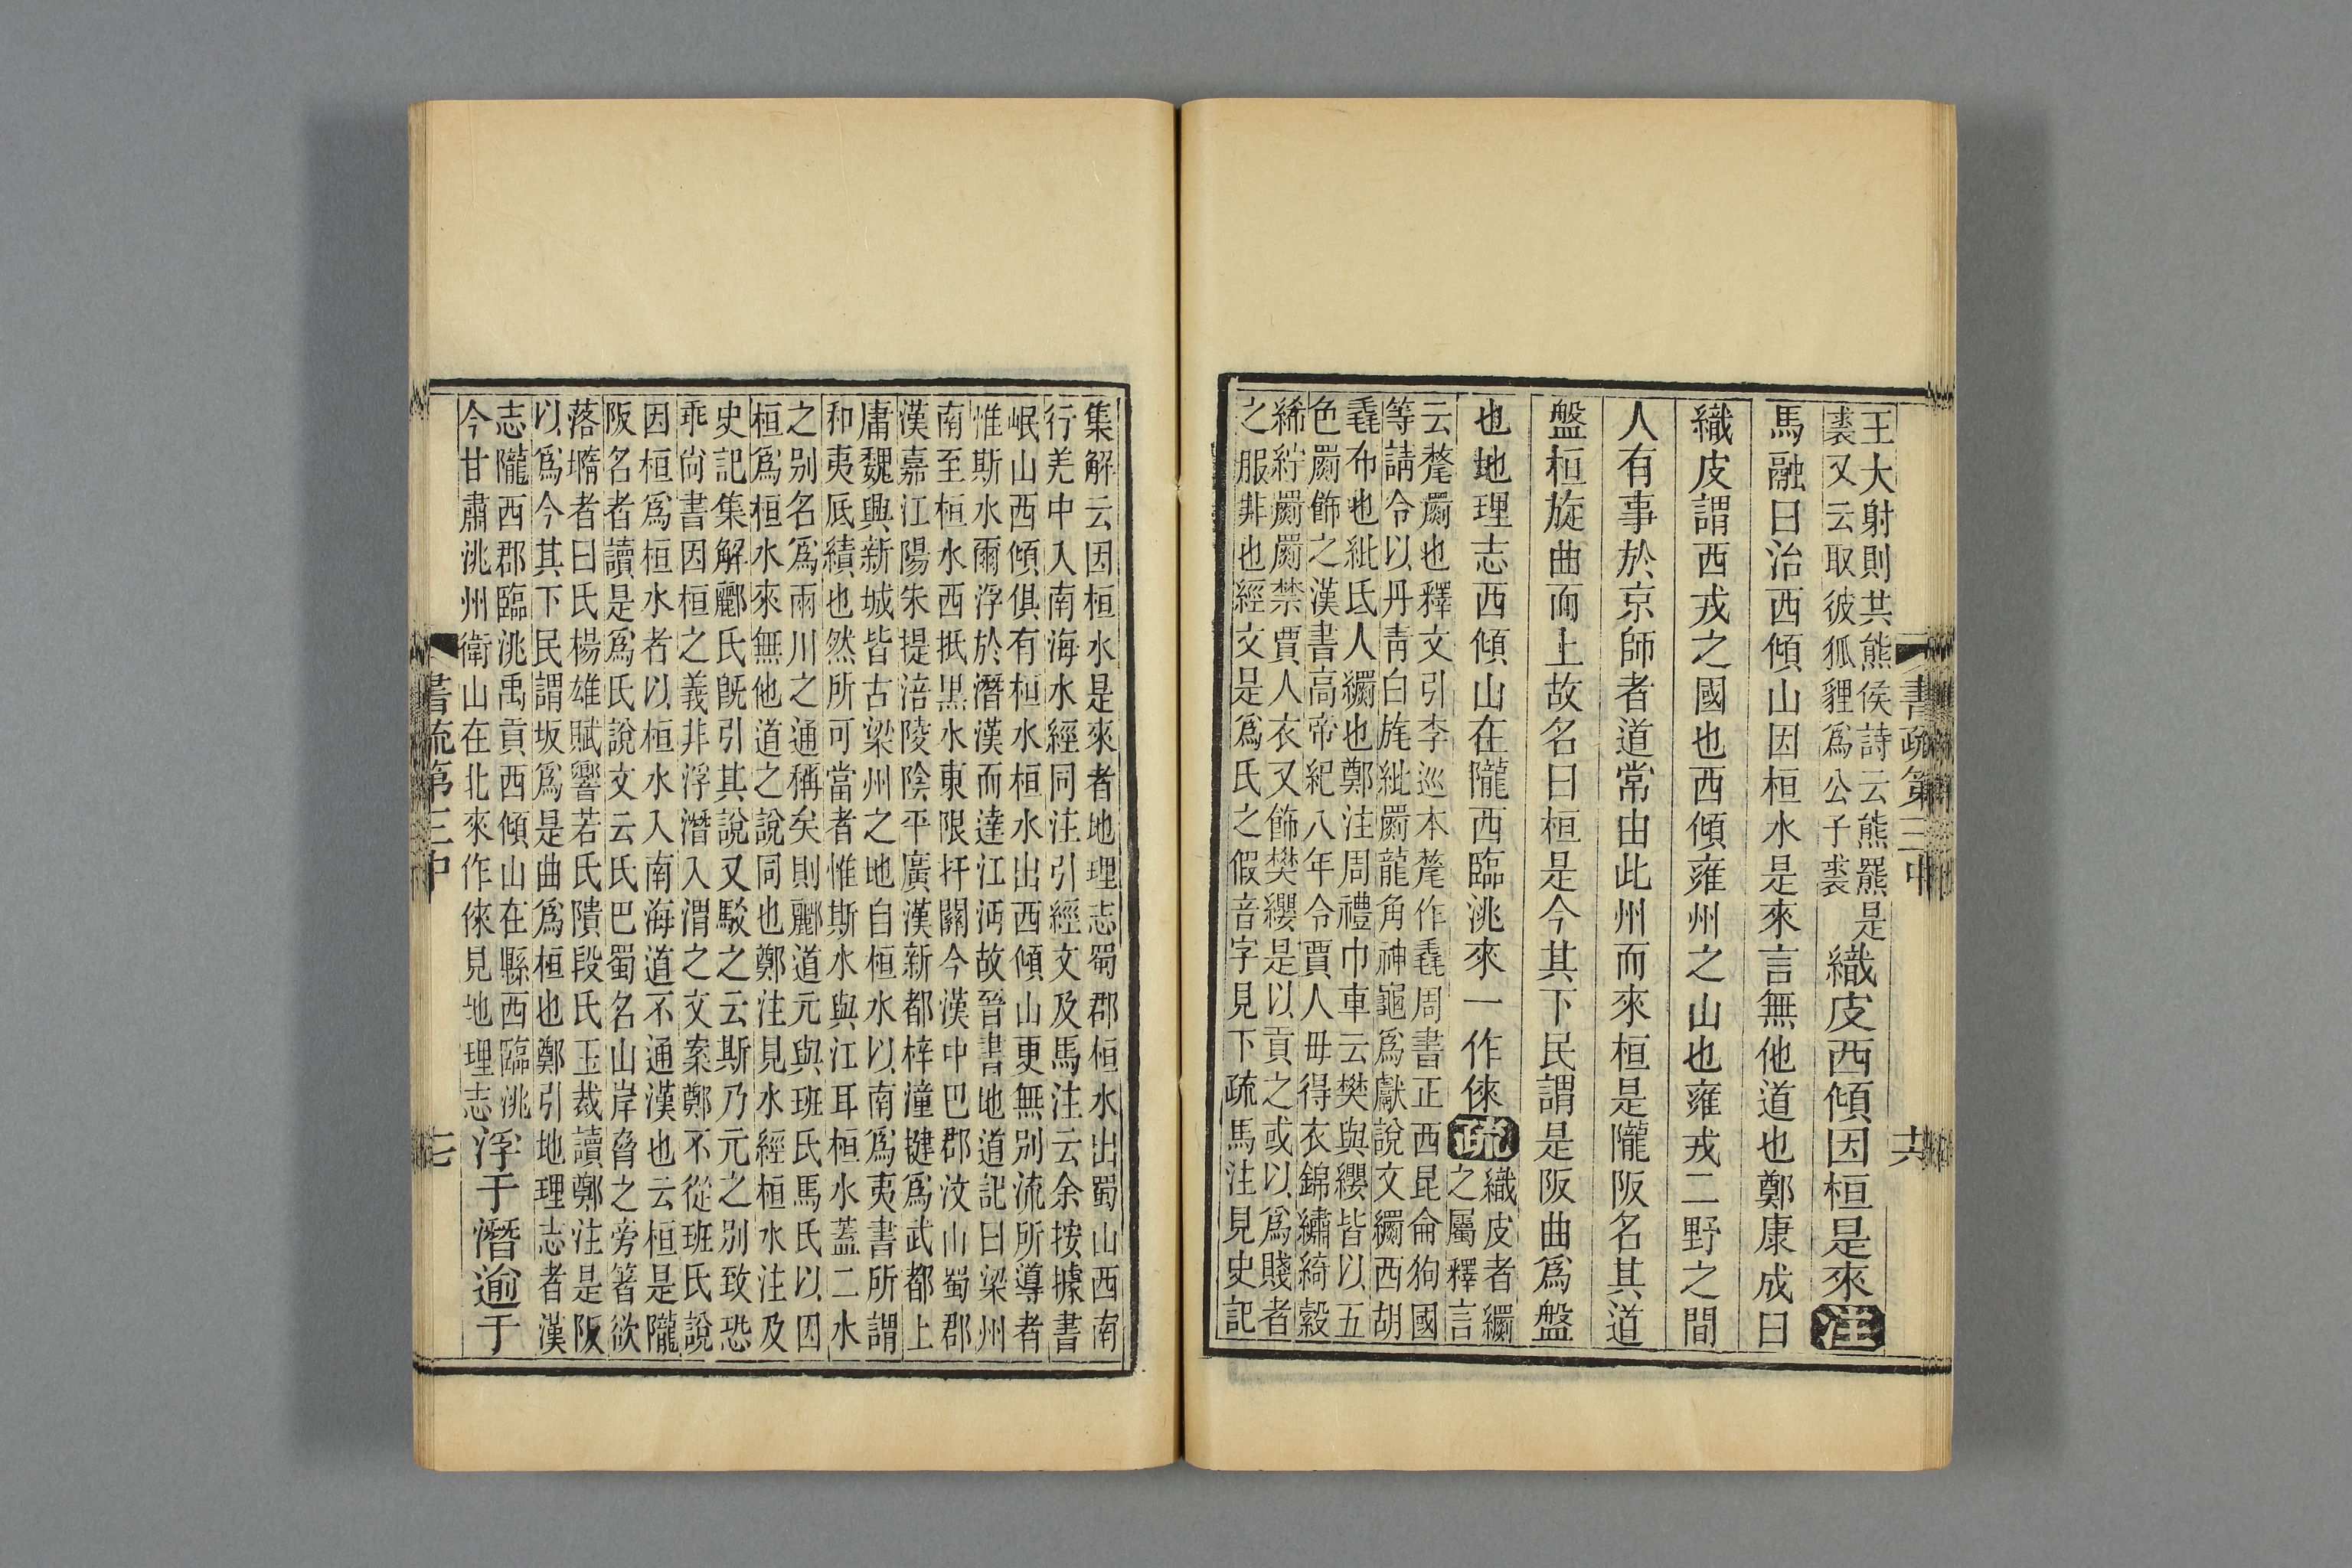 書疏第三中
十六
王大射則共熊侯詩云熊羆是
裘又云取彼狐貍爲公子裘
織皮西傾因桓是來注
馬融曰治西傾山因桓水是來言無他道也鄭康成曰
織皮謂西戎之國也西傾雍州之山也雍戎二野之間
人有事於京師者道常由此州而來桓是隴阪名其道
盤桓旋曲而上故名曰桓是今其下民謂是阪曲爲盤
也地理志西傾山在隴西臨洮來一作倈疏
織皮者纚
之屬釋言
云氂罽也釋文引李巡本氂作毳周書正西昆侖狗國
等請令以丹青白旄紕罽龍角神龜爲獻說文纚西胡
毳布也紕氐人纚也鄭注周禮巾車云樊與纓皆以五
色罽飾之漢書高帝紀八年令賈人毋得衣錦繡綺縠
絺紵罽罽禁賈人衣又飾樊纓是以貢之或以爲賤者
之服非也經文是爲氏之假音字見下疏馬注見史記
集解云因桓水是來者地理志蜀郡桓水出蜀山西南
行羌中入南海水經同注引經文及馬注云余按據書
岷山西傾俱有桓水桓水出西傾山更無別流所導者
惟斯水爾浮於潛漢而達江沔故晉書地道記曰梁州
南至桓水西抵黑水東限扞關今漢中巴郡汶山蜀郡
漢嘉江陽朱提涪陵陰平廣漢新都梓潼揵爲武都上
庸魏興新城皆古梁州之地自桓水以南爲夷書所謂
和夷厎績也然所可當者惟斯水與江耳桓水蓋二水
之別名爲兩川之通稱矣則酈道元與班氏馬氏以因
桓爲桓水來無他道之說同也鄭注見水經桓水注及
史記集解酈氏旣引其說又駁之云斯乃玄之別致恐
乖尙書因桓之義非浮潛入渭之文案鄭不從班氏說
因桓爲桓水者以桓水入南海道不通漢也云桓是隴
阪名者讀是爲氏說文云氏巴蜀名山岸脅之旁箸欲
落墮者曰氏楊雄賦響若氏隤段氏玉裁讀鄭注是阪
以爲今其下民謂坂爲是曲爲桓也鄭引地理志者漢
志隴西郡臨洮禹貢西傾山在縣西臨洮
今甘肅洮州衛山在北來作倈見地理志
浮于潛逾于
書疏第三中
七